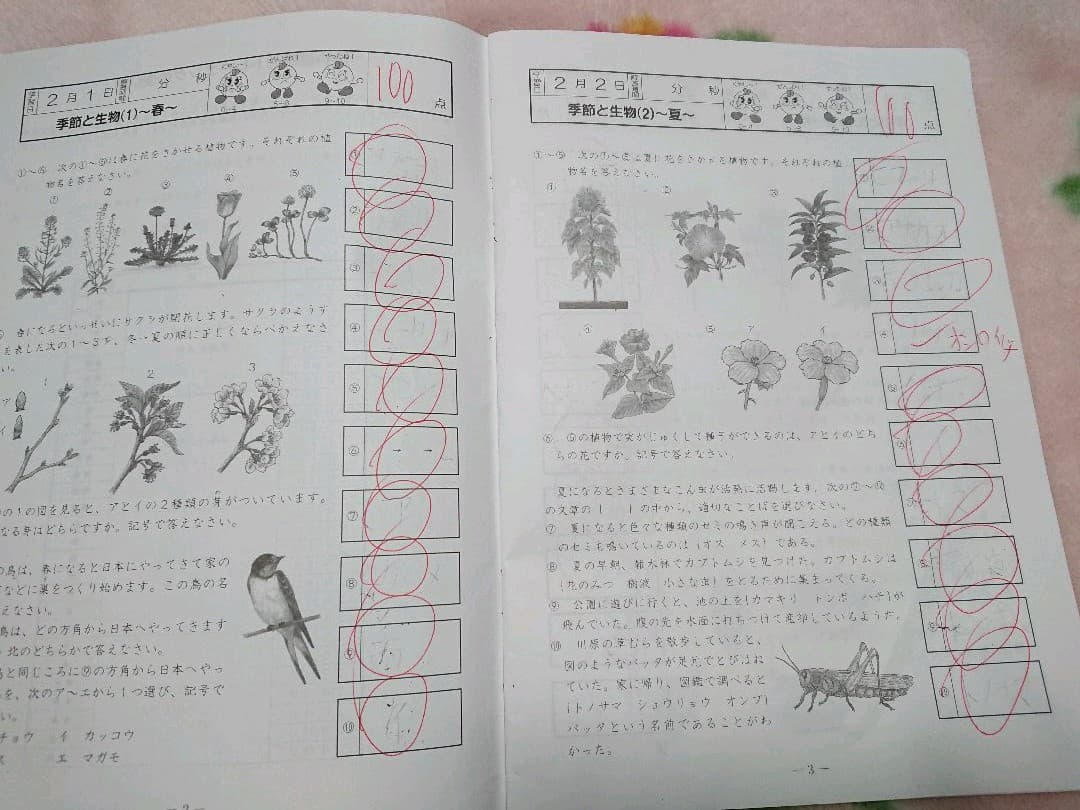 2月1日
分 秒
100
点
季節と生物(1)〜春〜
0〜4
5〜8
9〜10
①〜⑤ 次の①〜⑤は春に花をさかせる植物です。それぞれの植
物名を答えなさい。
①
②
③
④
⑤
春になるといっせいにサクラが開花します。サクラのようす
を表した次の1〜3を、冬→夏の順に正しくならべかえなさ
い。
1
2
3
ア
イ
の1の図を見ると、アとイの2種類の芽がついています。
なる芽はどちらですか。記号で答えなさい。
の鳥は、春になると日本にやってきて家の
などに巣をつくり始めます。この鳥の名
えなさい。
鳥は、どの方角から日本へやってきます
北のどちらかで答えなさい。
と同じころに⑨の方角から日本へやっ
を、次のア〜エから1つ選び、記号で
い。
チョウ イ カッコウ
ス エ マガモ
①
②
③
④
⑤
⑥
⑦
⑧
⑨
⑩
2月2日
分 秒
点
季節と生物(2)〜夏〜
①〜⑤ 次の①〜⑤は夏に花をさかせる植物です。それぞれの植
物名を答えなさい。
①
②
③
④
⑤ ア イ
⑥ ⑤の植物で実がじゅくして種子ができるのは、アとイのどち
らの花ですか。記号で答えなさい。
夏になるとさまざまなこん虫が活発に活動します。次の⑦〜⑩
の文章の( )の中から、適切なことばを選びなさい。
⑦ 夏になると色々な種類のセミの鳴き声が聞こえる。どの種類
のセミも鳴いているのは(オス メス)である。
⑧ 夏の早朝、雑木林でカブトムシを見つけた。カブトムシは
(花のみつ 樹液 小さな虫)をとるために集まってくる。
⑨ 公園に遊びに行くと、池の上を(カマキリ トンボ ハチ)が
飛んでいた。腹の先を水面に打ちつけて産卵しているようだ。
⑩ 川原の草むらを散歩していると、
図のようなバッタが足元でとびはね
ていた。家に帰り、図鑑で調べると
(トノサマ ショウリョウ オンブ)
バッタという名前であることがわ
かった。
―3―